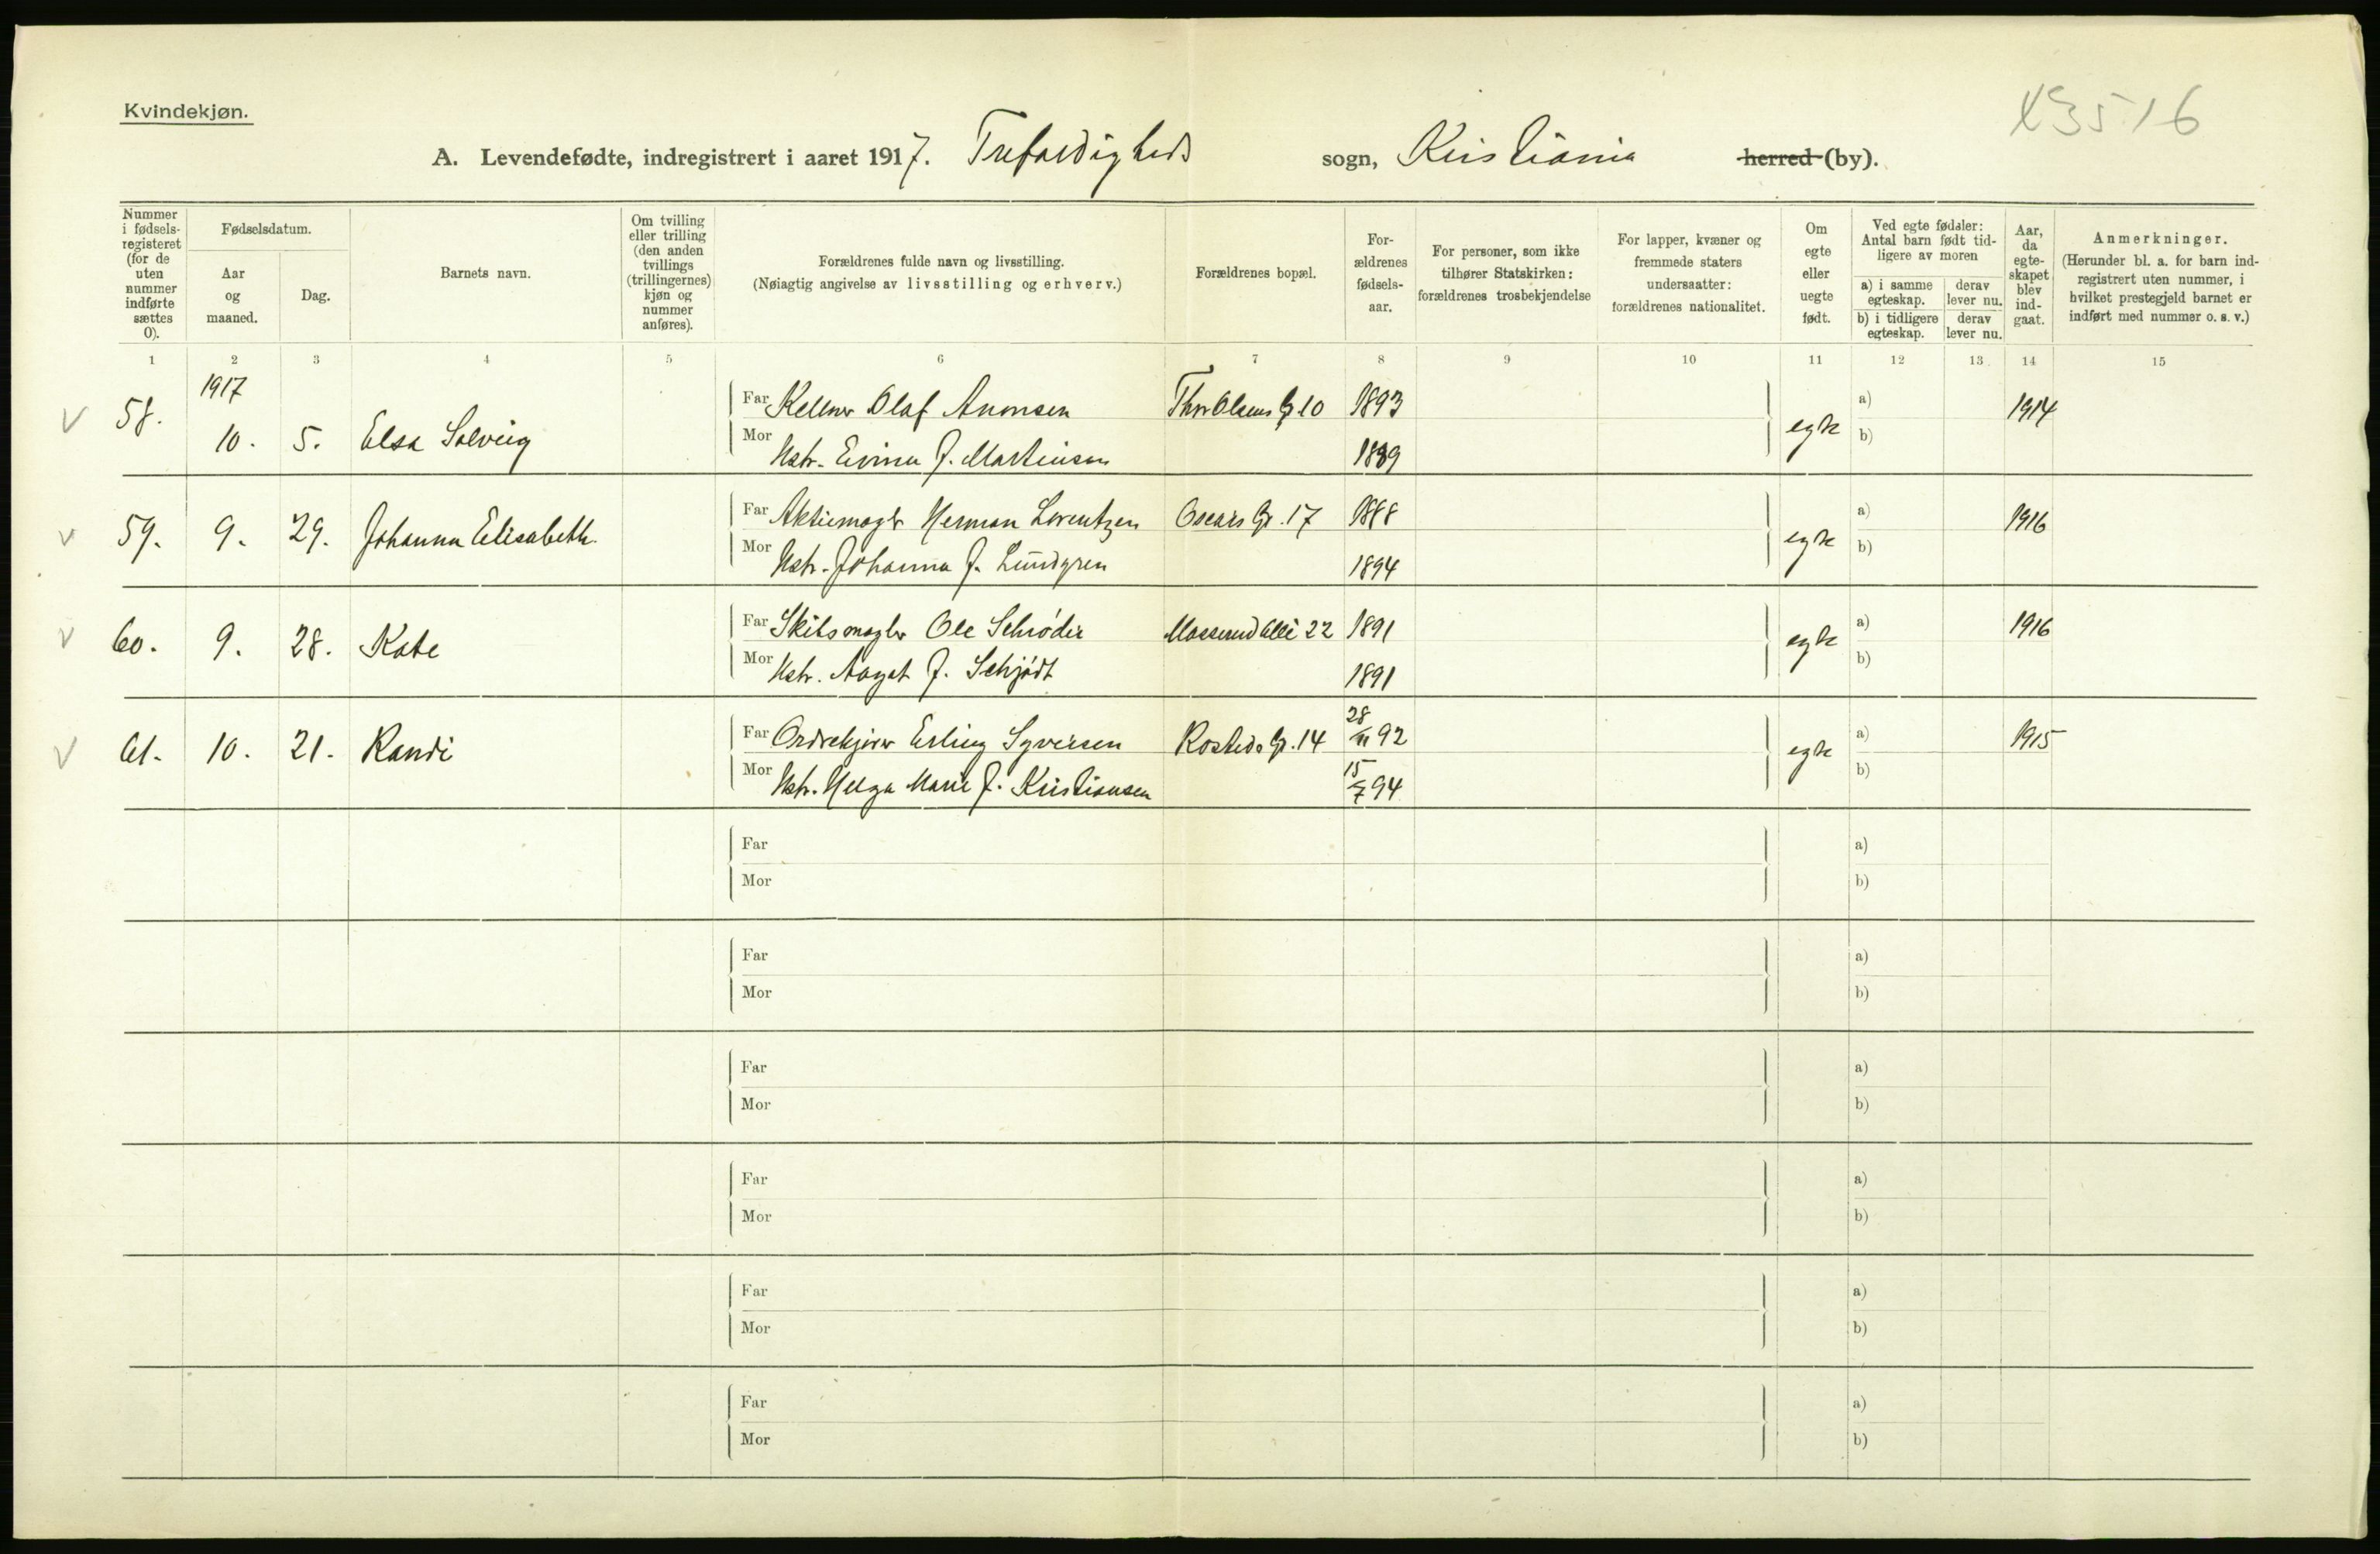 Kvindekjøn.
X3516
A. Levendefødte, indregistrert i aaret 1917. Trefoldigheds sogn, Kristiania herred (by).
Nummer i fødselsregisteret (for de uten nummer indførte sættes 0).
Fødselsdatum.
Aar og maaned.
Dag.
Barnets navn.
Om tvilling eller trilling (den anden tvillings (trillingernes) kjøn og nummer anføres).
Forældrenes fulde navn og livsstilling.
(Nøiagtig angivelse av livsstilling og erhverv.)
Forældrenes bopæl.
Forældrenes fødselsaar.
For personer, som ikke tilhører Statskirken: forældrenes trosbekjendelse
For lapper, kvæner og fremmede staters undersaatter: forældrenes nationalitet.
Om egte eller uegte født.
Ved egte fødsler: Antal barn født tidligere av moren
a) i samme egteskap. derav lever nu.
b) i tidligere egteskap. derav lever nu.
Aar, da egteskapet blev indgaat.
Anmerkninger.
(Herunder bl. a. for barn indregistrert uten nummer, i hvilket prestegjeld barnet er indført med nummer o. s. v.)
1 2 3 4 5 6 7 8 9 10 11 12 13 14 15
1917
V 58. 10. 5. Elsa Solveig Far Kellner Olaf Amonsen Thv Olsens G 10 1893 egte a) b) 1914
Mor Hstr. f. Martinsen 1889
V 59. 9. 29. Johanna Elisabeth. Far Aktiemægler Herman Lorentzen Oscars G. 17 1888 egte a) b) 1916
Mor Hstr. Johanna f. Lundgren 1894
V 60. 9. 28. Kate Far Skibsmægler Ole Schrøder Allé 22 1891 egte a) b) 1916
Mor Hstr. Aagot f. Schjødt 1891
V 61. 10. 21. Randi Far Ordrekjører Erling Syversen Rosteds G. 14 28/11 92 egte a) b) 1915
Mor Hstr. Helga Marie f. Kristiansen 15/7 94
Far a)
Mor b)
Far a)
Mor b)
Far a)
Mor b)
Far a)
Mor b)
Far a)
Mor b)
Far a)
Mor b)